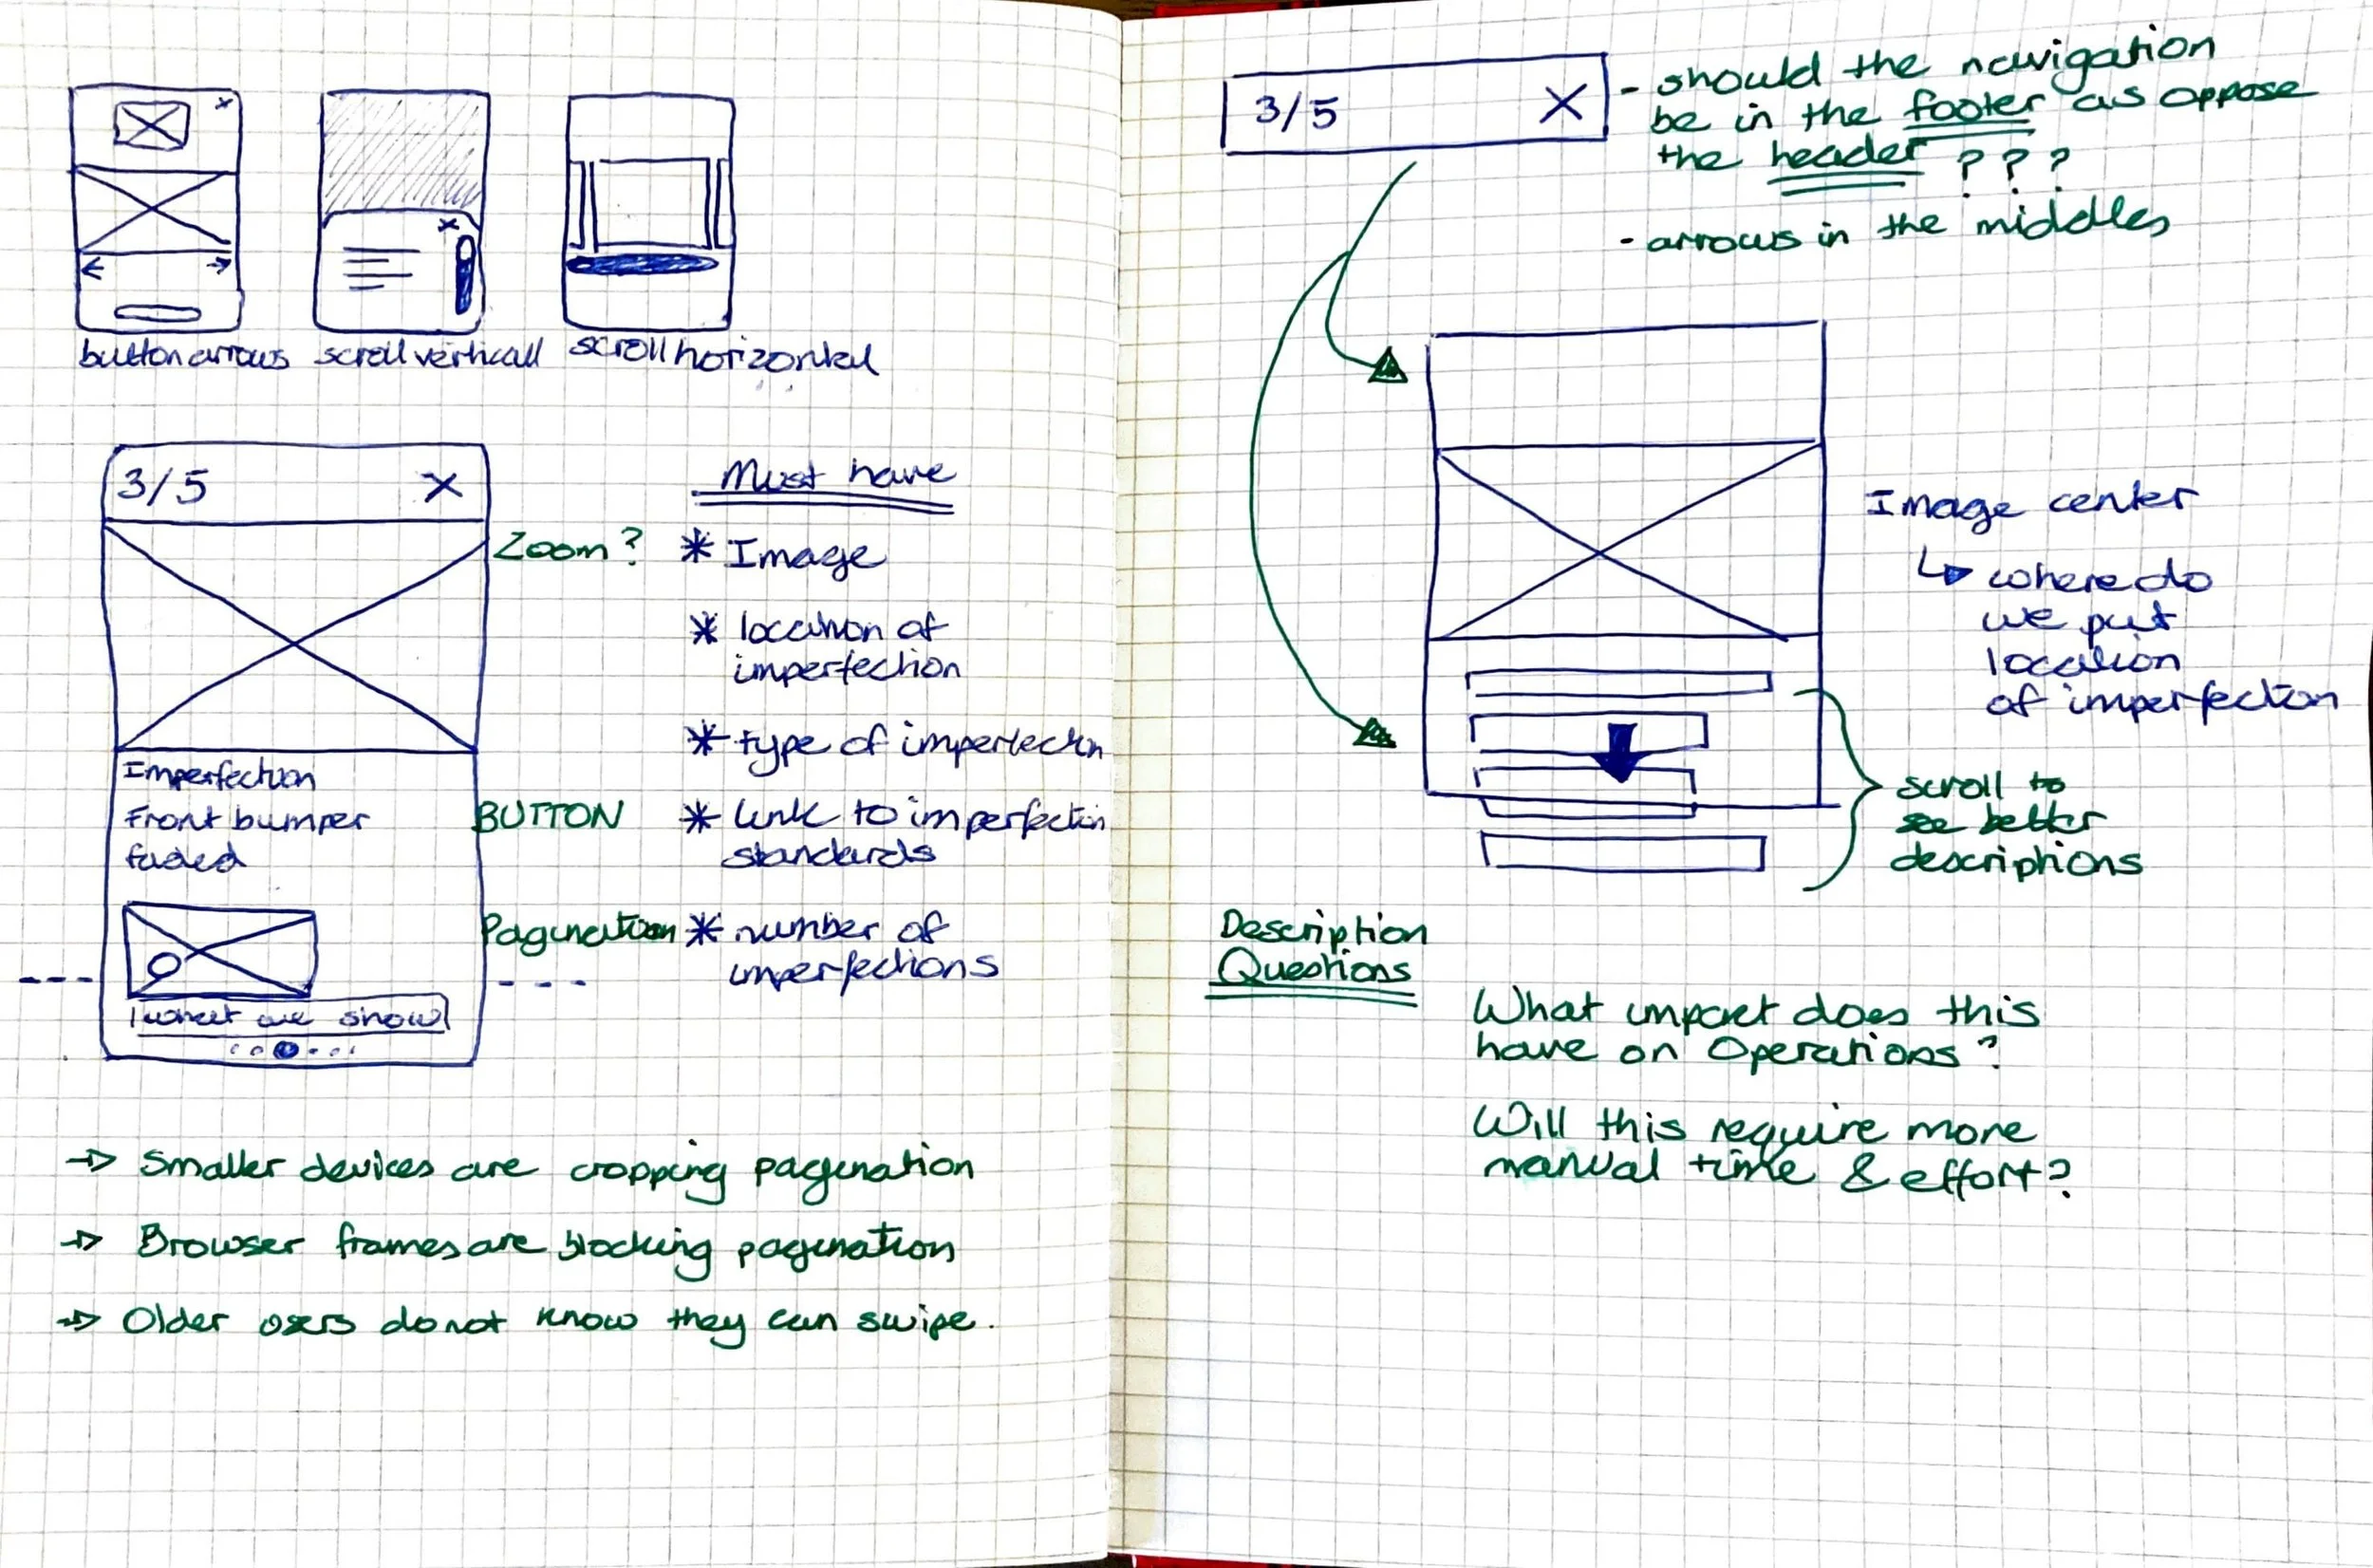 button arrows
scroll verticall
scroll horizontal
3/5 X
Zoom?
Imperfection
Front bumper
faded
BUTTON
Pagination
what we show
Must have
* Image
* location of
imperfection
* type of imperfectin
* link to imperfectin
standards
* number of
imperfections
→ Smaller devices are cropping pagination
→ Browser frames are blocking pagination
→ Older users do not know they can swipe.
3/5 X
- should the navigation
be in the footer as oppose
the header ? ? ?
- arrows in the middles
Image center
↳ where do
we put
location
of imperfection
scroll to
see better
descriptions
Description
Questions
What impact does this
have on Operations?
Will this require more
manual time & effort?